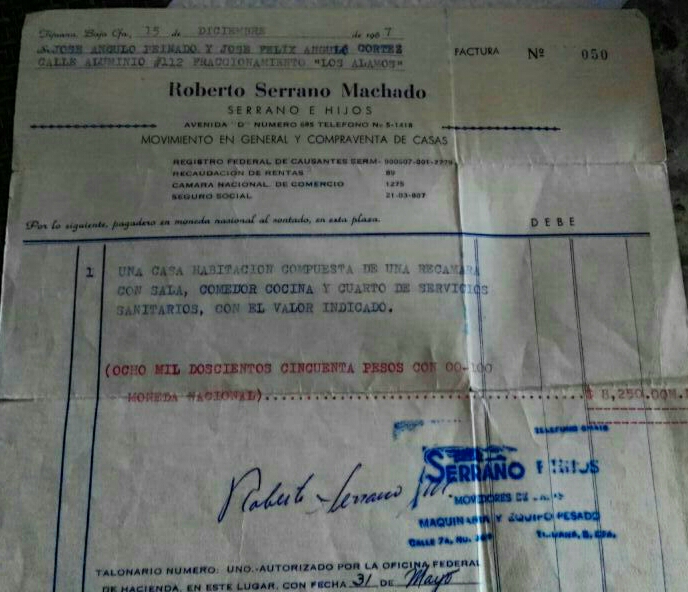 Tijuana, Baja Cfa., 15 de DICIEMBRE de 1967
JOSE ANGULO PEINADO Y JOSE FELIX ANGULO CORTEZ
CALLE ALUMINIO #112 FRACCIONAMIENTO "LOS ALAMOS"
FACTURA Nº 050
Roberto Serrano Machado
SERRANO E HIJOS
AVENIDA "D" NUMERO 695 TELEFONO No 5-1418
MOVIMIENTO EN GENERAL Y COMPRAVENTA DE CASAS
REGISTRO FEDERAL DE CAUSANTES SERM-
RECAUDACION DE RENTAS 89
CAMARA NACIONAL DE COMERCIO 1275
SEGURO SOCIAL 21-03-807
Por lo siguiente, pagadero en moneda nacional al contado, en esta plaza.
DEBE
1 UNA CASA HABITACION COMPUESTA DE UNA RECAMARA
CON SALA, COMEDOR COCINA Y CUARTO DE SERVICIOS
SANITARIOS, CON EL VALOR INDICADO.
(OCHO MIL DOSCIENTOS CINCUENTA PESOS CON 00-100
MONEDA NACIONAL)............................$ 8,250.00M.
TELEFONO
SERRANO E HIJOS
Roberto Serrano
MOVEDORES DE
MAQUINARIA Y EQUIPO PESADO
CALLE 7A. NO. TIJUANA, B. CFA.
TALONARIO NUMERO: UNO.-AUTORIZADO POR LA OFICINA FEDERAL
DE HACIENDA, EN ESTE LUGAR, CON FECHA 31 DE Mayo